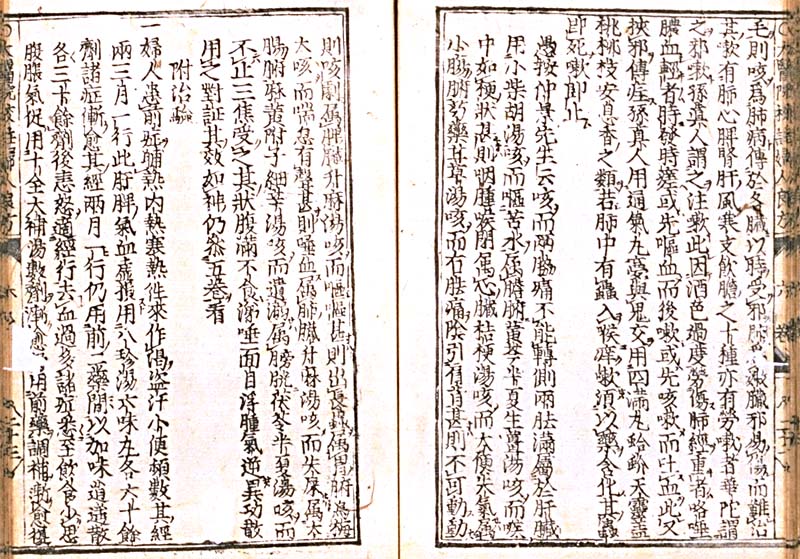 毛則咳爲肺痛傳於各臟以時受邪肺嗽臟邪易傷而難治
其嗽有肺心脾腎肝風寒支飲膽之十種亦有勞嗽者華陀謂
之邪嗽孫真人謂之注嗽此因酒色過度勞傷肺經重者咯唾
膿血輕者時發時瘥或先嘔血而後嗽或先咳嗽而吐血此又
挾邪傳疰孫真人用通氣丸蒙與鬼交用四滿丸蛤蚧天靈盖
桃桃枝安息香之類若肺中有蟲入喉痒嗽須以藥含化其蟲
即死嗽即止
愚按仲景先生云咳而兩脇痛不能轉側兩胠滿屬於肝臟
用小柴胡湯咳而嘔苦水屬膽腑黃芩半夏生薑湯咳而喉
中如梗狀甚則咽腫喉閉屬心臟桔梗湯咳而大便失氣屬
小腸腑芍藥甘草湯咳而右脇痛陰引肩背甚則不可動動
則咳劇屬脾臟升麻湯咳而嘔嘔甚則出長蟲屬胃腑烏梅
咳而喘息有聲甚則唾血屬肺臟升麻湯咳而失屎屬大
腸腑麻黃附子細辛湯咳而遺溺屬膀胱茯苓半夏湯咳而
不止三焦受之其狀腹滿不食涕唾面目浮腫氣逆異功散
用之對証其效如神仍參五卷看
附治驗
一婦人患前症晡熱內熱寒熱徃來作渴盜汗小便頻數其經
兩三月一行此肝脾氣血虛損用八珍湯六味丸各六十餘
劑諸症漸愈其經兩月一行仍用前二藥間以加味逍遥散
各三十餘劑後恚怒適經行去血過多諸症悉至飲食少思
腹脹氣促用十全大補湯數劑漸愈仍用前藥調補漸愈復